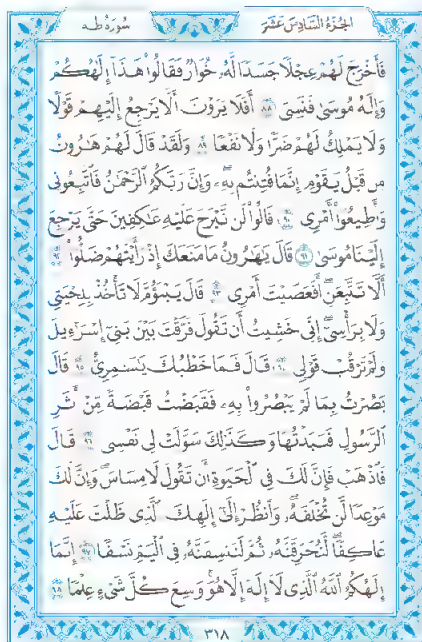 الجزء السادس عشر
سورة طه
فَأَخْرَجَ لَهُمْ عِجْلًا جَسَدًا لَّهُ خُوَارٌ فَقَالُوا هَٰذَا إِلَٰهُكُمْ
وَإِلَٰهُ مُوسَىٰ فَنَسِيَ ٨٨ أَفَلَا يَرَوْنَ أَلَّا يَرْجِعُ إِلَيْهِمْ قَوْلًا
وَلَا يَمْلِكُ لَهُمْ ضَرًّا وَلَا نَفْعًا ٨٩ وَلَقَدْ قَالَ لَهُمْ هَٰرُونُ
مِن قَبْلُ يَٰقَوْمِ إِنَّمَا فُتِنتُم بِهِ وَإِنَّ رَبَّكُمُ الرَّحْمَٰنُ فَاتَّبِعُونِي
وَأَطِيعُوا أَمْرِي ٩٠ قَالُوا لَن نَّبْرَحَ عَلَيْهِ عَٰكِفِينَ حَتَّىٰ يَرْجِعَ
إِلَيْنَا مُوسَىٰ ٩١ قَالَ يَٰهَٰرُونُ مَا مَنَعَكَ إِذْ رَأَيْتَهُمْ ضَلُّوا ٩٢
أَلَّا تَتَّبِعَنِ أَفَعَصَيْتَ أَمْرِي ٩٣ قَالَ يَبْنَؤُمَّ لَا تَأْخُذْ بِلِحْيَتِي
وَلَا بِرَأْسِي إِنِّي خَشِيتُ أَن تَقُولَ فَرَّقْتَ بَيْنَ بَنِي إِسْرَٰٓءِيلَ
وَلَمْ تَرْقُبْ قَوْلِي ٩٤ قَالَ فَمَا خَطْبُكَ يَٰسَٰمِرِيُّ ٩٥ قَالَ
بَصُرْتُ بِمَا لَمْ يَبْصُرُوا بِهِ فَقَبَضْتُ قَبْضَةً مِّنْ أَثَرِ
الرَّسُولِ فَنَبَذْتُهَا وَكَذَٰلِكَ سَوَّلَتْ لِي نَفْسِي ٩٦ قَالَ
فَاذْهَبْ فَإِنَّ لَكَ فِي الْحَيَوٰةِ أَن تَقُولَ لَا مِسَاسَ وَإِنَّ لَكَ
مَوْعِدًا لَّن تُخْلَفَهُ وَانظُرْ إِلَىٰ إِلَٰهِكَ الَّذِي ظَلْتَ عَلَيْهِ
عَاكِفًا لَّنُحَرِّقَنَّهُ ثُمَّ لَنَنسِفَنَّهُ فِي الْيَمِّ نَسْفًا ٩٧ إِنَّمَا
إِلَٰهُكُمُ اللَّهُ الَّذِي لَا إِلَٰهَ إِلَّا هُوَ وَسِعَ كُلَّ شَيْءٍ عِلْمًا ٩٨
٣١٨